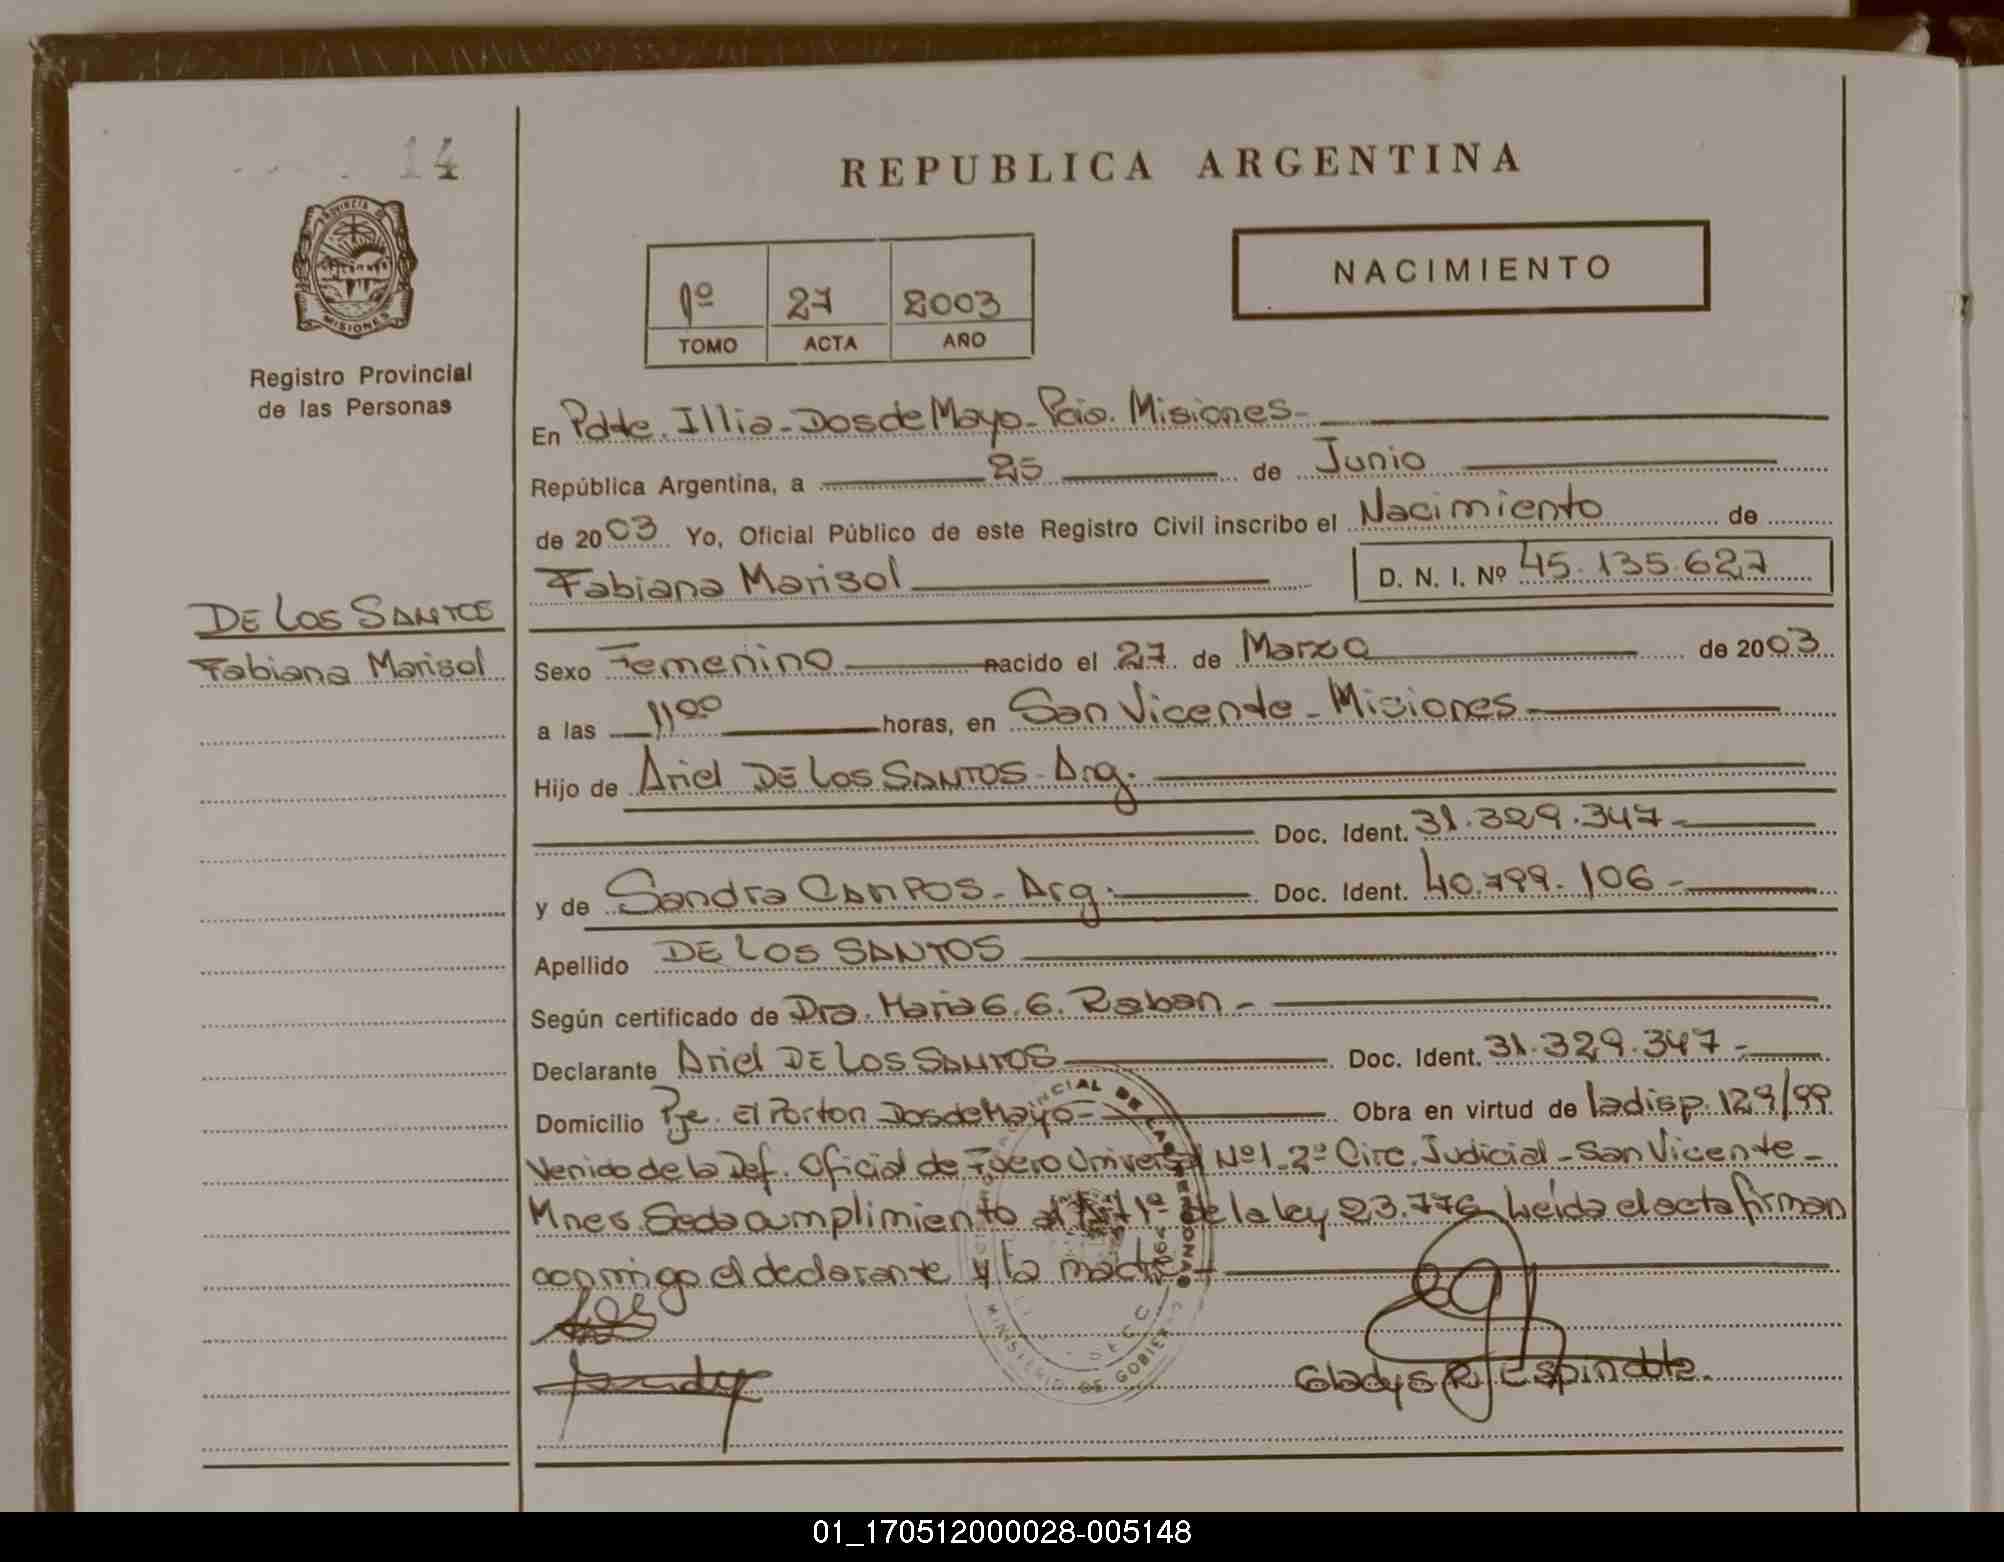 14
REPUBLICA ARGENTINA
PROVINCIA DE
MISIONES
Registro Provincial
de las Personas
NACIMIENTO
1º 27 2003
TOMO ACTA AÑO
En Pdte. Illia - Dos de Mayo - Pcia. Misiones -
República Argentina, a 25 de Junio
de 2003 Yo, Oficial Público de este Registro Civil inscribo el Nacimiento de
Fabiana Marisol D. N. I. Nº 45.135.627
DE LOS SANTOS
Fabiana Marisol
Sexo Femenino nacido el 27 de Marzo de 2003
a las 11 00 horas, en San Vicente - Misiones -
Hijo de Ariel DE LOS SANTOS - Arg.
Doc. Ident. 31.329.347 -
y de Sandra CAMPOS - Arg. - Doc. Ident. 40.799.106 -
Apellido DE LOS SANTOS
Según certificado de Dra. Maria G. G. Raban -
Declarante Ariel DE LOS SANTOS Doc. Ident. 31.329.347 -
Domicilio Pje. El Porton Dos de Mayo - Obra en virtud de la disp. 129/99
Venido de la Def. Oficial de Fuero Universal Nº 1 - 2º Circ. Judicial - San Vicente -
Mnes. Se da cumplimiento al Art 1º de la ley 23.776 Leída el acta firman
conmigo el declarante y la madre -
Gladys R. Espindola.
MINISTERIO DE GOBIERNO
01_170512000028-005148